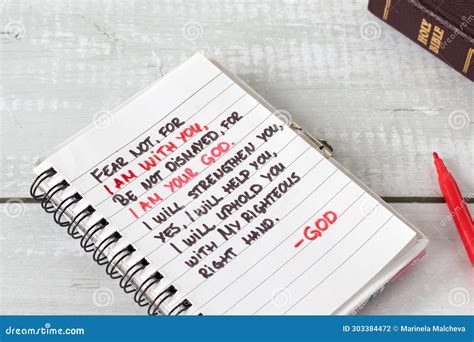 HOLY
BIBLE
FEAR NOT, FOR
I AM WITH YOU,
BE NOT DISMAYED, FOR
I AM YOUR GOD.
I WILL STRENGTHEN YOU,
YES, I WILL HELP YOU,
I WILL UPHOLD YOU
WITH MY RIGHTEOUS
RIGHT HAND.
-GOD
dreamstime.com
ID 303384472 © Marinela Malcheva